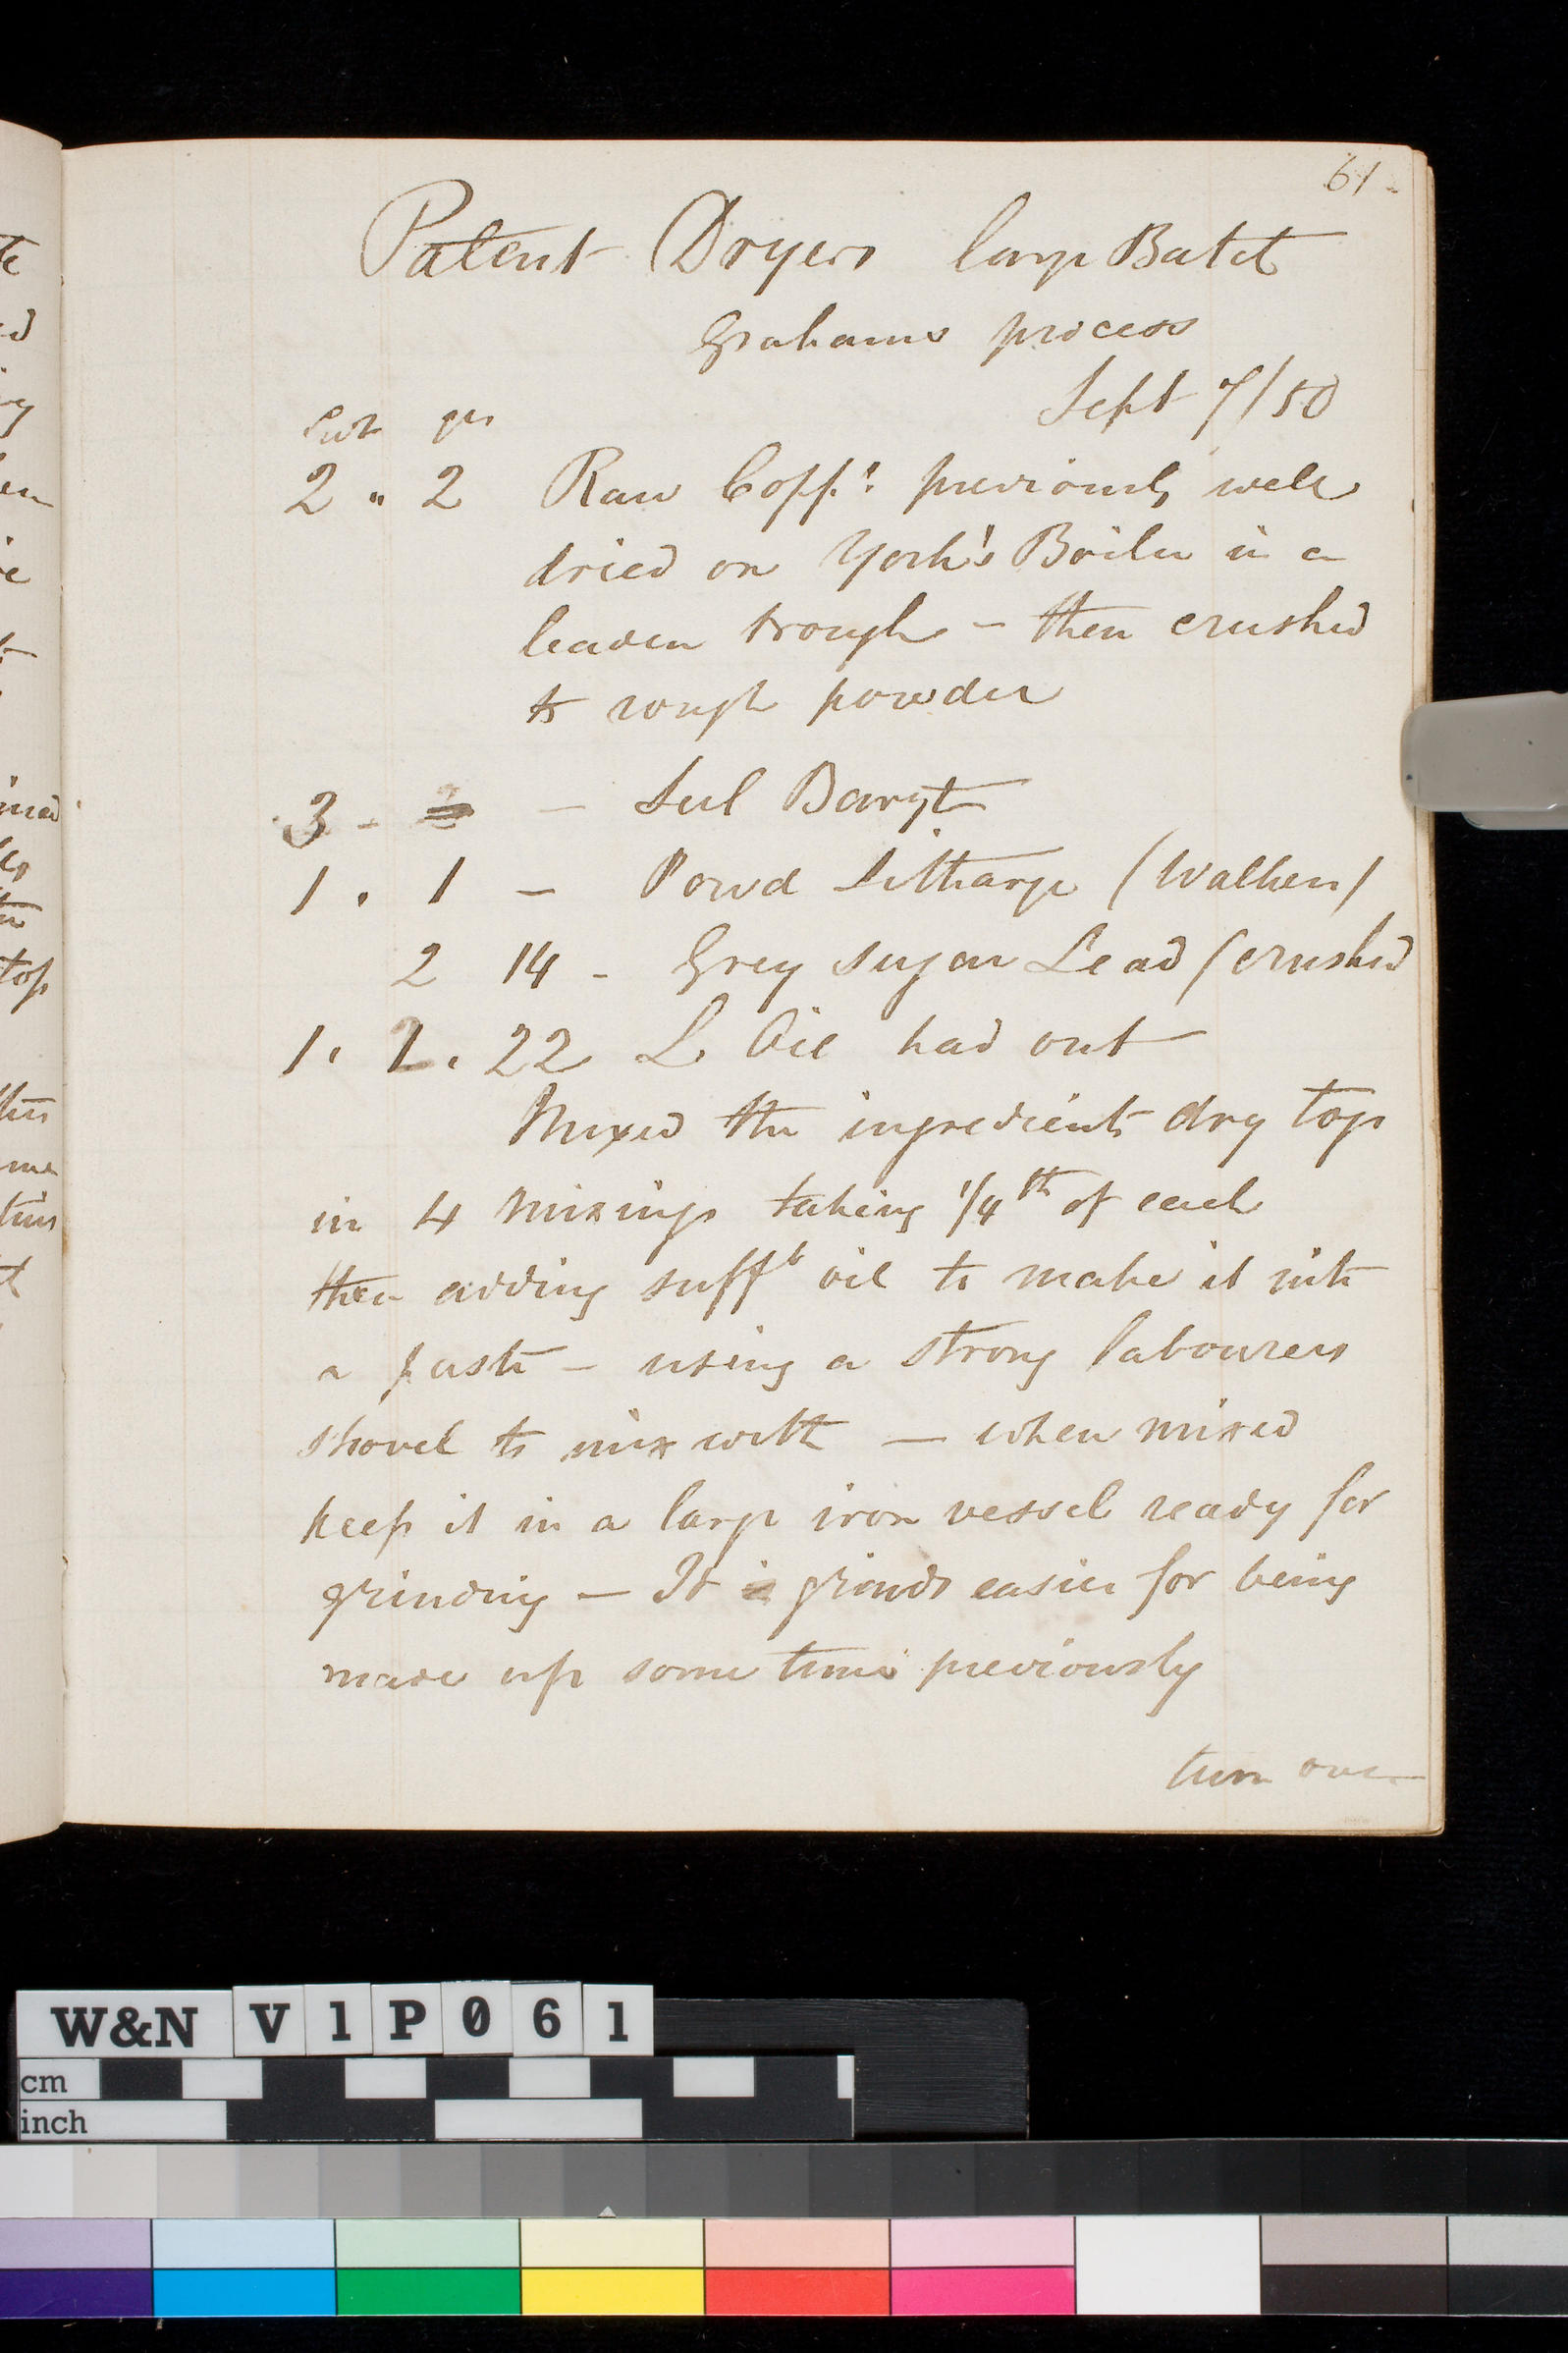 61.
Patent Dryers large Batch
Grahams process
Sept 7/50
Cwt qrs
2 " 2 Raw Copps previously well
dried on York's Boiler in a
leaden trough – then crushed
to rough powder
3 - – Sul Baryt
1 . 1 – Powd Litharge (Walkers)
2 14 - Grey Sugar Lead (crushed
1. 1. 22 L Oil had out
Mixed the ingredients dry top
in 4 mixings taking 1/4th of each
then adding sufft oil to make it into
a paste – using a strong labourers
shovel to mix with – when mixed
keep it in a large iron vessel ready for
grinding – It grinds easier for being
made up some time previously
turn over
W&N V1P061
cm
inch